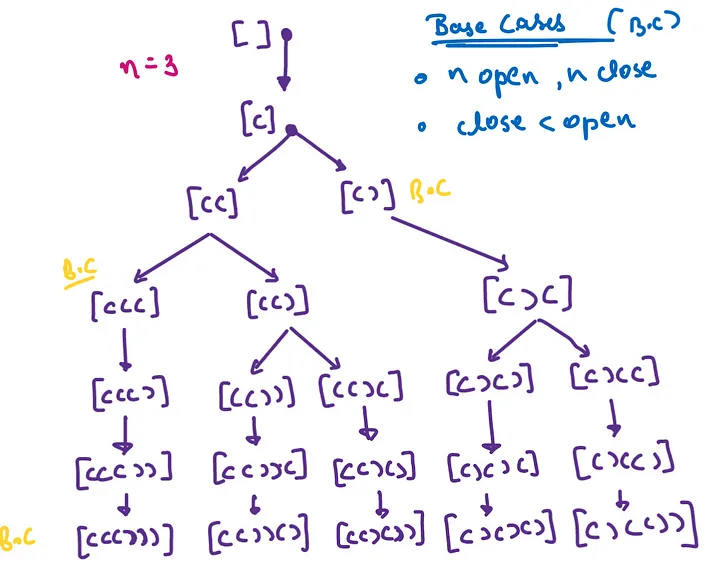 [ ]
Base Cases (B.C)
n = 3
• n open, n close
• close < open
[(]
[((]
[()] B.C
B.C
[(((]
[(()]
[()(]
[((()]
[(())]
[(()(]
[()()]
[()((]
[((())]
[(())(]
[(()()]
[()()(]
[()(()]
B.C
[((()))]
[(())()]
[(()())]
[()()()]
[()(())]